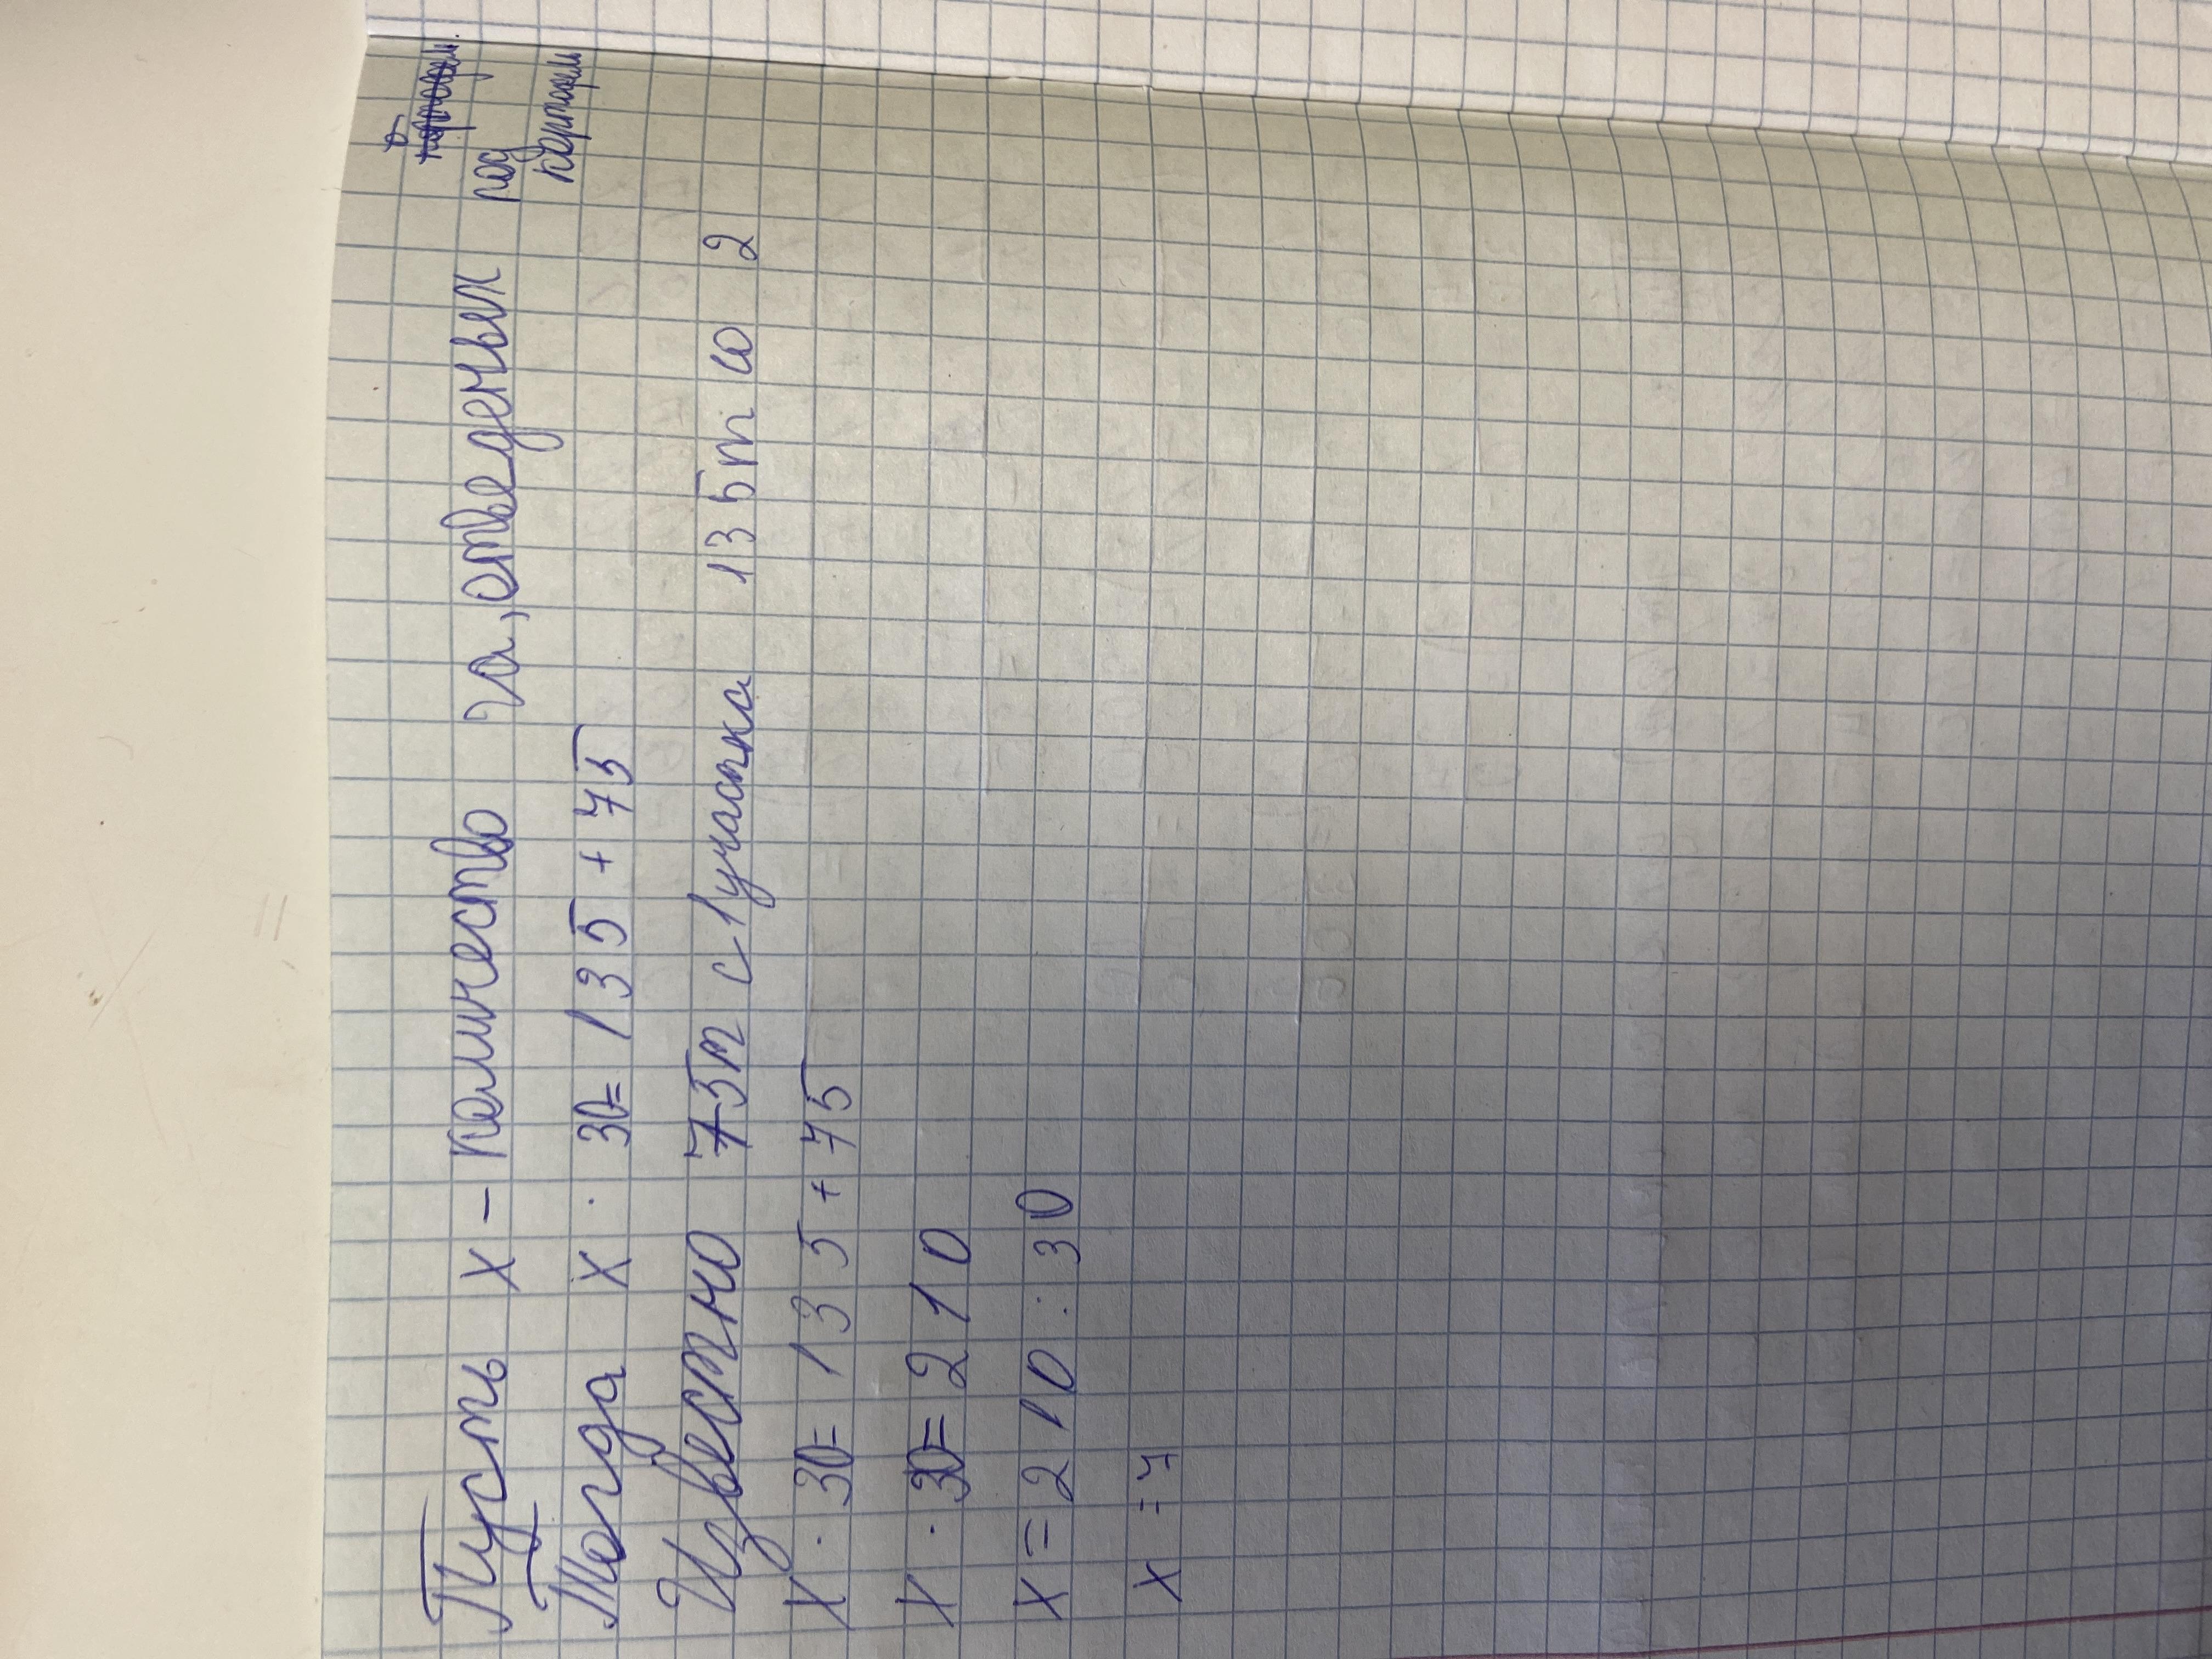 Пусть х - количество га, отведеных под картофель
Тогда х · 30 = 135 + 75
Известно 75т с 1 участка 135т со 2
х · 30 = 135 + 75
х · 30 = 210
х = 210 : 30
х = 7